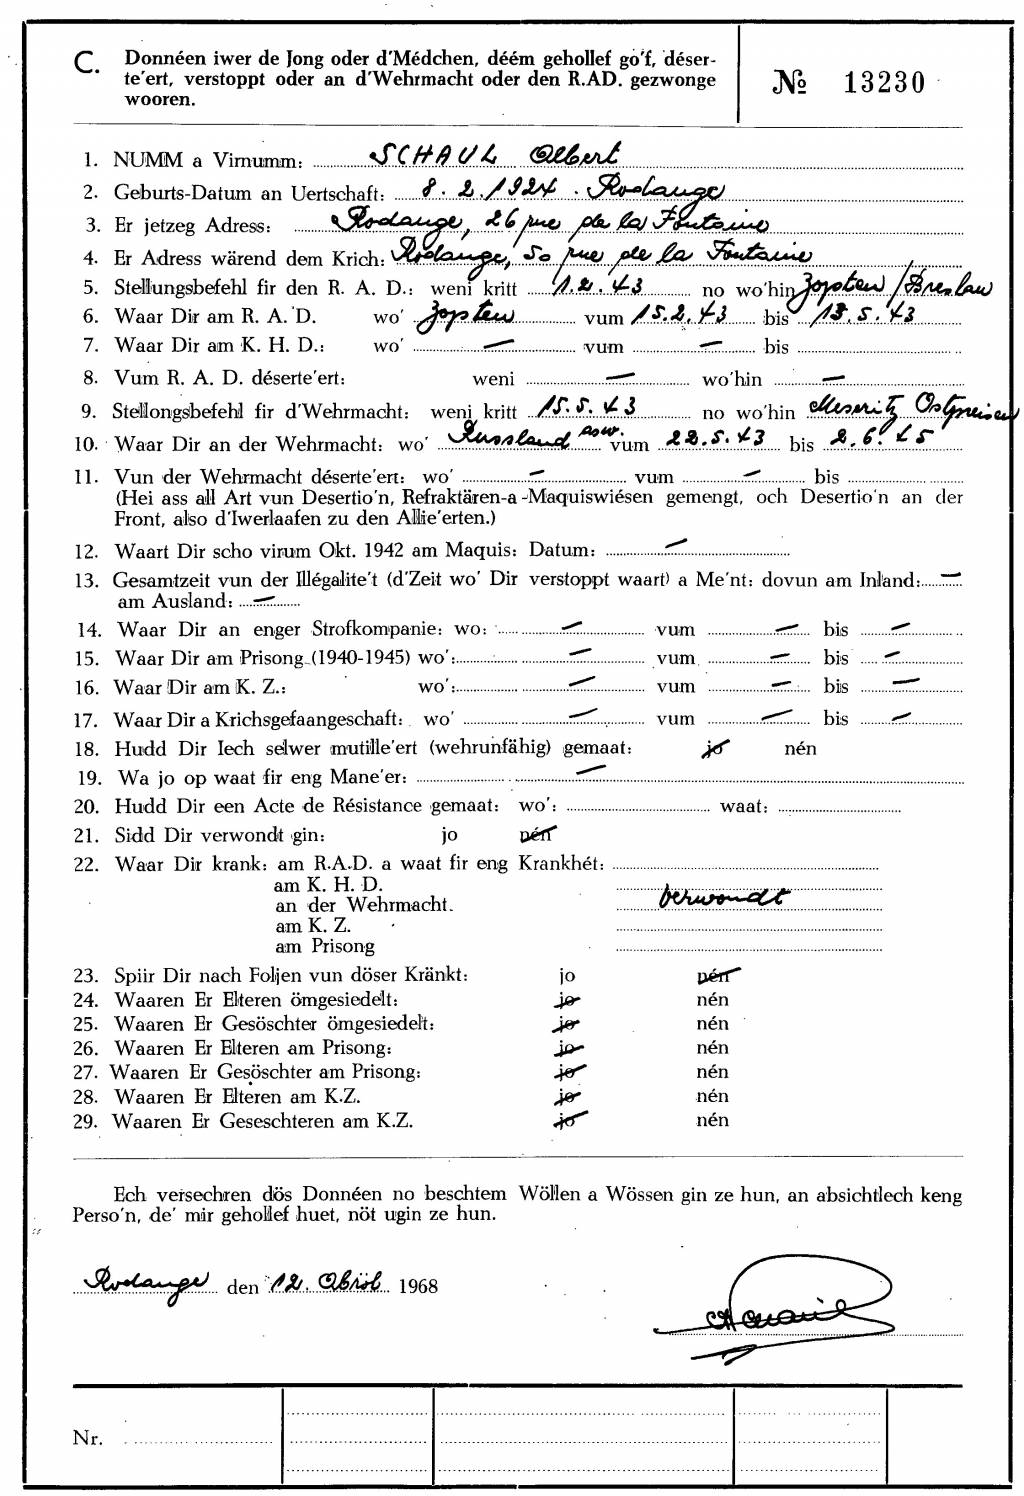 C. Donnéen iwer de Jong oder d'Médchen, déém gehollef go'f, déser-
te'ert, verstoppt oder an d'Wehrmacht oder den R.AD. gezwonge
wooren.
№ 13230
1. NUMM a Virnumm: SCHAUL Albert
2. Geburts-Datum an Uertschaft: 8.2.1924. Rodange
3. Er jetzeg Adress: Rodange, 26 rue de la Fontaine
4. Er Adress wärend dem Krich: Rodange, 50 rue de la Fontaine
5. Stellungsbefehl fir den R. A. D.: weni kritt 1.2.43 no wo'hin Zopten/Breslau
6. Waar Dir am R. A. D. wo' Zopten vum 15.2.43 bis 13.5.43
7. Waar Dir am K. H. D.: wo' — vum — bis
8. Vum R. A. D. déserte'ert: weni — wo'hin —
9. Stellongsbefehl fir d'Wehrmacht: weni kritt 15.5.43 no wo'hin Meseritz Ostpreisen
10. Waar Dir an der Wehrmacht: wo' Russland asw. vum 22.5.43 bis 2.6.45
11. Vun der Wehrmacht déserte'ert: wo' — vum — bis
(Hei ass all Art vun Desertio'n, Refraktären-a-Maquiswiésen gemengt, och Desertio'n an der
Front, also d'Iwerlaafen zu den Allie'erten.)
12. Waart Dir scho virum Okt. 1942 am Maquis: Datum: —
13. Gesamtzeit vun der Illégalite't (d'Zeit wo' Dir verstoppt waart) a Me'nt: dovun am Inland: —
am Ausland: —
14. Waar Dir an enger Strofkompanie: wo: — vum — bis —
15. Waar Dir am Prisong (1940-1945) wo': — vum — bis —
16. Waar Dir am K. Z.: wo': — vum — bis —
17. Waar Dir a Krichsgefaangeschaft: wo' — vum — bis —
18. Hudd Dir Iech selwer mutille'ert (wehrunfähig) gemaat: jo nén
19. Wa jo op waat fir eng Mane'er: —
20. Hudd Dir een Acte de Résistance gemaat: wo': waat:
21. Sidd Dir verwondt gin: jo nén
22. Waar Dir krank: am R.A.D. a waat fir eng Krankhét:
am K. H. D.
an der Wehrmacht. verwondt
am K. Z.
am Prisong
23. Spiir Dir nach Foljen vun döser Kränkt: jo nén
24. Waaren Er Elteren ömgesiedelt: jo nén
25. Waaren Er Gesöschter ömgesiedelt: jo nén
26. Waaren Er Elteren am Prisong: jo nén
27. Waaren Er Gesöschter am Prisong: jo nén
28. Waaren Er Elteren am K.Z. jo nén
29. Waaren Er Geseschteren am K.Z. jo nén
Ech versechren dös Donnéen no beschtem Wöllen a Wössen gin ze hun, an absichtlech keng
Perso'n, de' mir gehollef huet, nöt ugin ze hun.
Rodange den 12. Abröl 1968
Nr.